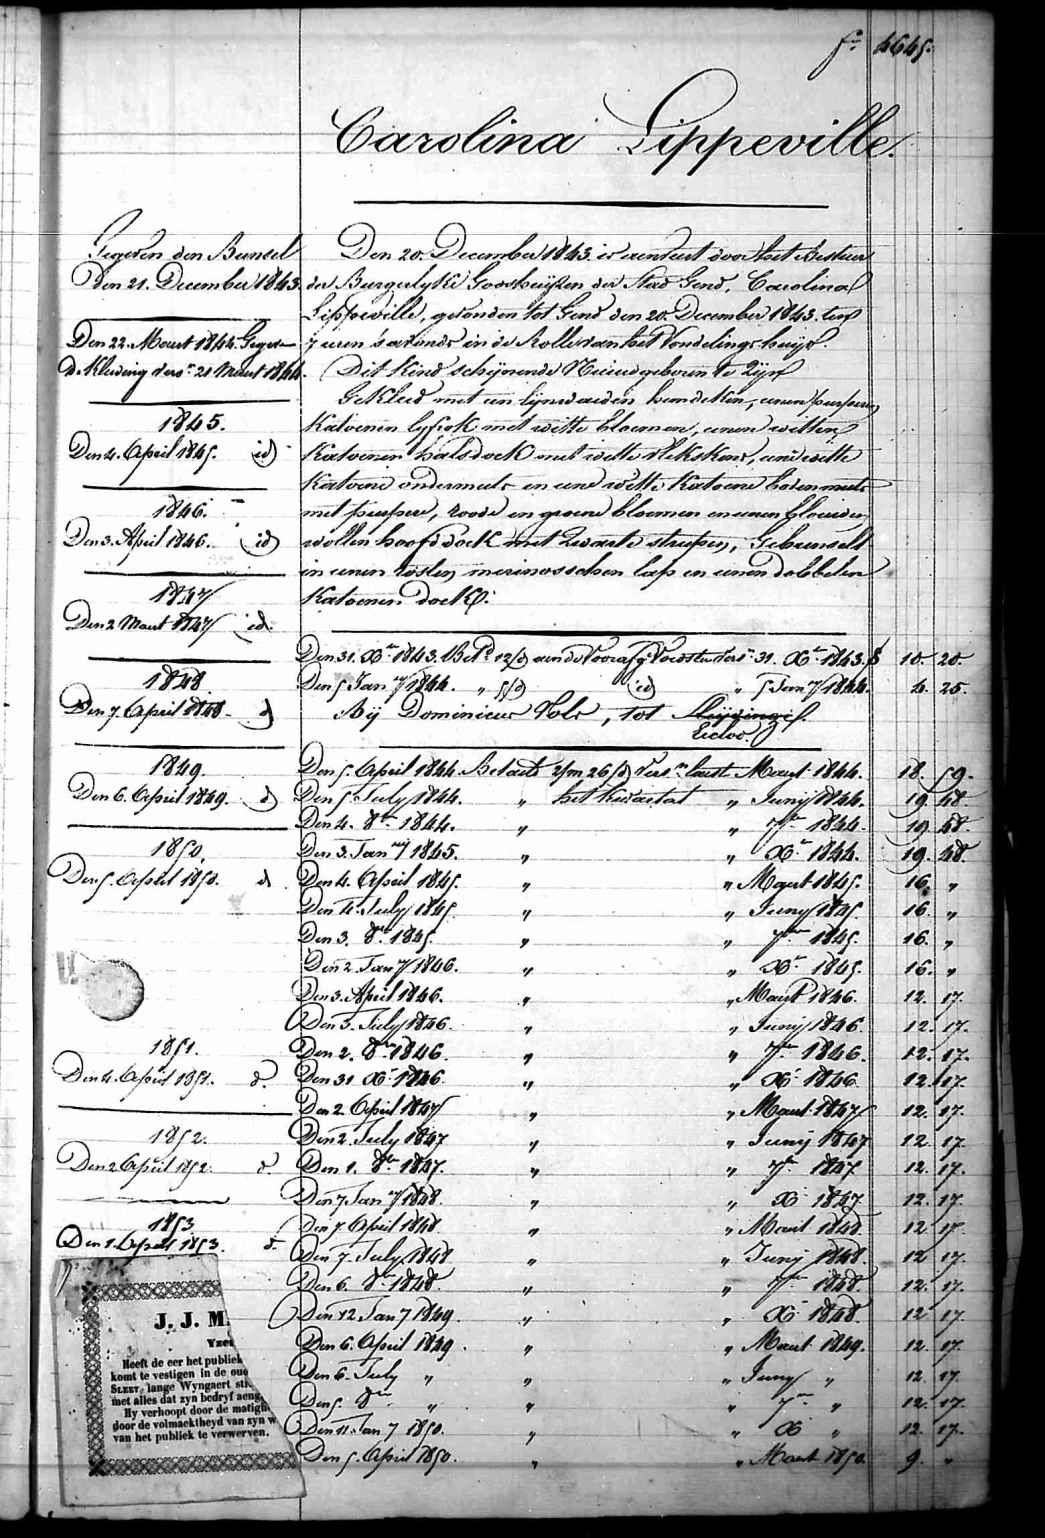 fo 4645.
Carolina Lippeville.
Gegeven den Bunsel
Den 21. December 1843.
Den 22. Maert 1844. Gegev
de Kleeding vers.n 21 Maert 1844.
1845.
Den 4. April 1845. id
1846.
Den 3. April 1846. id
1847
Den 2 Maert 1847 id.
1848
Den 7. April 1848. d
1849.
Den 6. April 1849. d
1850.
Den 5. April 1850. d
1851.
Den 4. April 1851. d.
1852.
Den 2 April 1852. d.
1853
Den 1. April 1853. d.
Den 20. December 1843. is aenveert door het Bestuer
der Burgerlyke Godshuijsen der Stad Gend, Carolina
Lippeville, gevonden tot Gend den 20. December 1843. ten
7 uren s'avonds in de Rolle van het Vondelings-huijs.
Dit Kind schijnende Nieuwgeboren te Zijn
Gekleed met een lijnwaeden hemdeken, eenen purperen
Katoenen lyfrok met witte bloemen, eenen witten
Katoenen halsdoek met witte vlekskens, eene witte
Katoene ondermuts en eene witte Katoene bovenmuts
met purpere, roode en groene bloemen en eenen blauwen
wollen hoofddoek met Zwarte streepen, Gebunselt
in eenen rosten merinosschen lap en eenen dobbelen
Katoenen doek.
Den 31. Xr 1843. Bet.d 12/d aen de Vooraf.g Voedster vers.n 31. Xr 1843. f 10. 20.
Den 5 Jan.y 1844. " 5/d id " 5 Jan.y 1844. 4. 25.
Bij Dominicus Nols, tot Sleijdinge.
Eecloo.
Den 5. April 1844. Betaelt 2/m 26/d vers.n laest Maert 1844. 18. 59.
Den 5. July 1844. " het Kwartael " Junij 1844. 19 48.
Den 4. 8br 1844. " " 7br 1844. 19 48.
Den 3. Jan.y 1845. " " Xr 1844. 19. 48.
Den 4. April 1845. " " Maert 1845. 16. "
Den 4. July 1845. " " Juny 1845. 16. "
Den 3. 8br 1845. " " 7br 1845. 16. "
Den 2. Jan.y 1846. " " Xr 1845. 16. "
Den 3. April 1846. " " Maert 1846. 12. 17.
Den 3. July 1846. " " Junij 1846. 12. 17.
Den 2. 8br 1846. " " 7br 1846. 12. 17.
Den 31 Xr 1846. " " Xr 1846 12. 17.
Den 2. April 1847 " " Maert 1847 12. 17.
Den 2. July 1847 " " Junij 1847 12. 17
Den 1. 8br 1847. " " 7br 1847. 12. 17.
Den 7 Jan.y 1848. " " X 1847 12. 17.
Den 7. April 1848 " " Maert 1848. 12. 17
Den 7. July 1848 " " Junij 1848. 12 17.
Den 6. 8br 1848. " " 7br 1848. 12. 17.
Den 12 Jan.y 1849 " " Xr 1848. 12 17.
Den 6. April 1849 " " Maert 1849. 12. 17.
Den 6. July " " " Juny " 12. 17.
Den 5. 8br " " " 7br " 12. 17.
Den 11. Jan.y 1850. " " X " 12. 17.
Den 5. April 1850. " " Maert 1850. 9. "
J. J. M.
Heeft de eer het publiek
komt te vestigen in de oud
Sleet lange Wyngaert st
met alles dat zyn bedryf aeng
Hy verhoopt door de matigh
door de volmaektheyd van zyn w
van het publiek te verwerven.